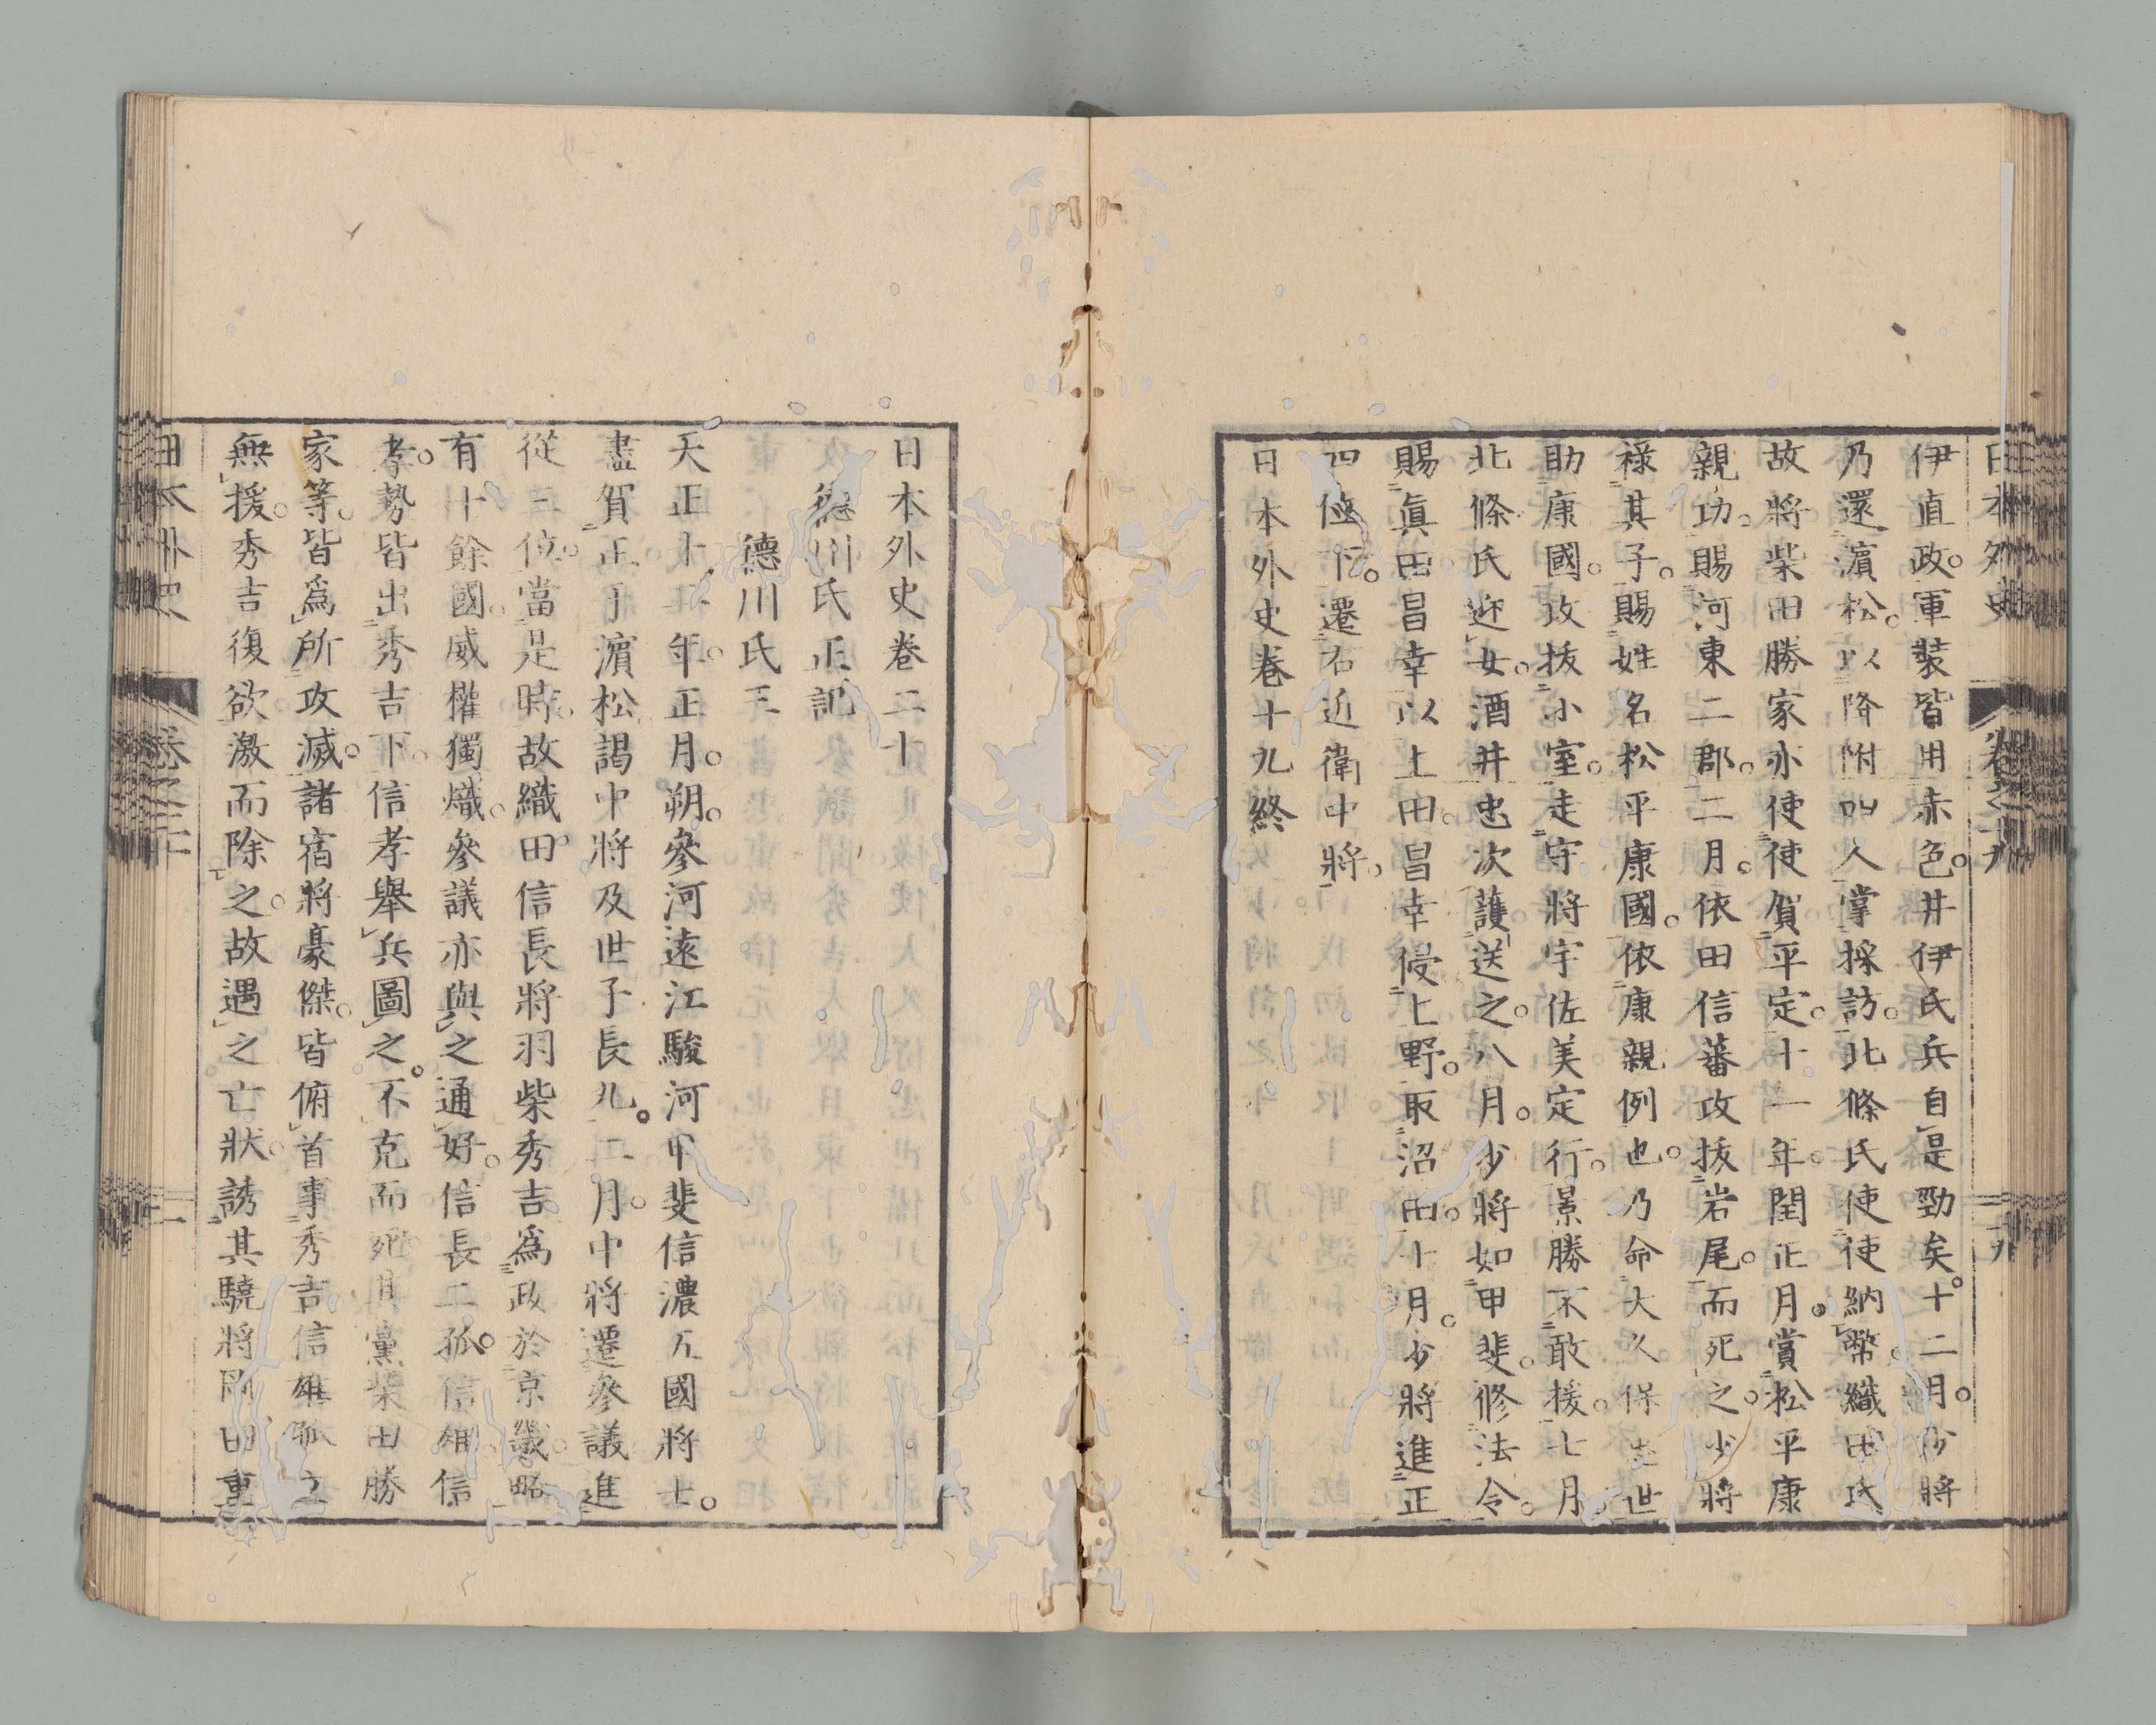 日本外史 卷之十九 十九
伊直政。軍裝皆用赤色。井伊氏兵自是勁矣。十二月。少將
乃還濱松。以降附四人掌採訪。北條氏使使納幣。織田氏
故將柴田勝家亦使使賀平定。十一年。閏正月。賞松平康
親功。賜河東二郡。二月。依田信蕃攻拔岩尾。而死之。少將
祿其子。賜姓名松平康國。依康親例也。乃命大久保忠世
助康國。攻拔小室。走守將宇佐美定行。景勝不敢援。七月
北條氏迎女。酒井忠次護送之。八月。少將如甲斐。修法令。
賜眞田昌幸以上田。昌幸侵上野。取沼田。十月。少將進正
四位下。遷右近衛中將。
日本外史卷十九終
日本外史卷二十
德川氏正記
德川氏三
天正十二年。正月。朔。參河遠江駿河甲斐信濃五國將士。
盡賀正于濱松謁中將及世子長丸。二月。中將遷參議進
從三位。當是時。故織田信長將羽柴秀吉爲政於京畿略
有十餘國。威權獨熾。參議亦與之通好。信長二孤。信雄信
孝。勢皆出秀吉下。信孝舉兵圖之。不克而死。其黨柴田勝
家等。皆爲所攻滅。諸宿將豪傑。皆俯首事秀吉信雄孤立
無援。秀吉復欲激而除之。故遇之亡狀。誘其驍將岡田重
日本外史 卷之二十 一